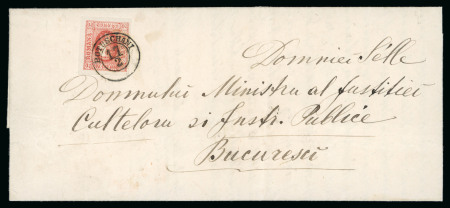 BOTUSCHANI
11
2
Domniei Sélle
Domnului Ministru al Justitiei
Cultelora si Instr. Publice
Bucuresci